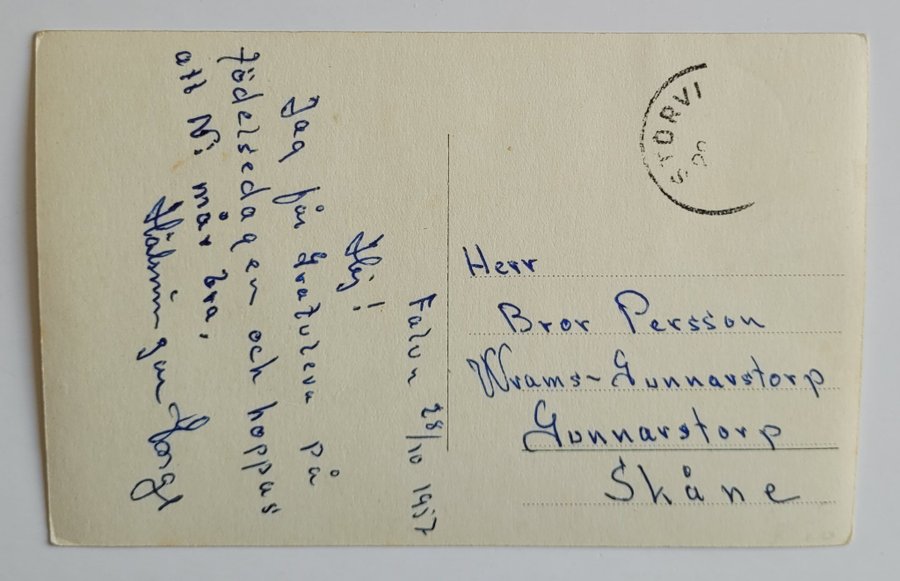 Falun 28/10 1957
Hej!
Jag får Gratulera på
födelsedagen och hoppas
att Ni mår bra.
Hälsningar
STORVI
Herr
Bror Persson
Wrams-Gunnarstorp
Gunnarstorp
Skåne